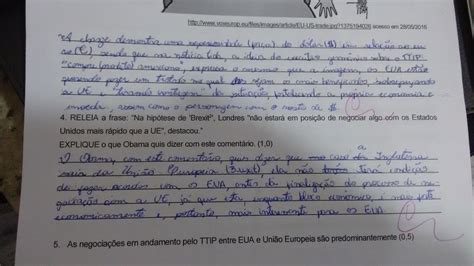 http://www.voxeurop.eu/files/images/article/EU-US-trade.jpg?1375194026 acesso em 28/05/2016
A charge demonstra uma superioridade (preço) do dólar ($) em relação ao eu-
ro (€), sendo que na notícia lida, a ideia do ministro germânico sobre o TTIP
"compre produtos americanos", expressa o mesmo que a imagem, os EUA estão
querendo fazer um tratado no qual eles sejam os mais beneficiados,
a UE e "levando vantagem" da situação, a própria economia e
moeda, assim como o personagem com o rosto de $.
4. RELEIA a frase: "Na hipótese de 'Brexit', Londres "não estará em posição de negociar algo com os Estados
Unidos mais rápido que a UE", destacou."
EXPLIQUE o que Obama quis dizer com este comentário. (1,0)
O Obama, com este comentário, quis dizer que no caso da Inglaterra
saia da União Europeia (Brexit), ela não teria condição
de fazer acordos com os EUA, antes da finalização do processo de ne-
gociação com a UE, já que esta, enquanto bloco econômico, é mais forte
economicamente e, portanto, mais interessante para os EUA.
5. As negociações em andamento pelo TTIP entre EUA e União Europeia são predominantemente (0,5)